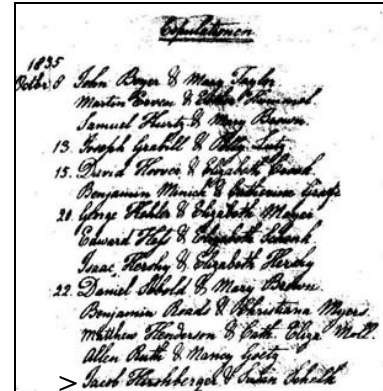 Copulationen
1835
Octbr. 8 John Boyer & Mary Taylor
Martin & Hummel
Samuel Kurtz & Mary Brown
13. Joseph Grabill & Lutz
15. David Hoover & Elizabeth
Benjamin Minich & Catherine
20. George Kohler & Elizabeth Moyer
Edward Hess & Elizabeth Schenk
Isaac Hershy & Elizabeth Hersey
22. Daniel & Mary Brown
Benjamin Roads & Christiana Myers
Matthew Henderson & Cath. Eliza Moll.
Allen Ruth & Nancy Goetz
> Jacob Hershberger & Susan Schenk